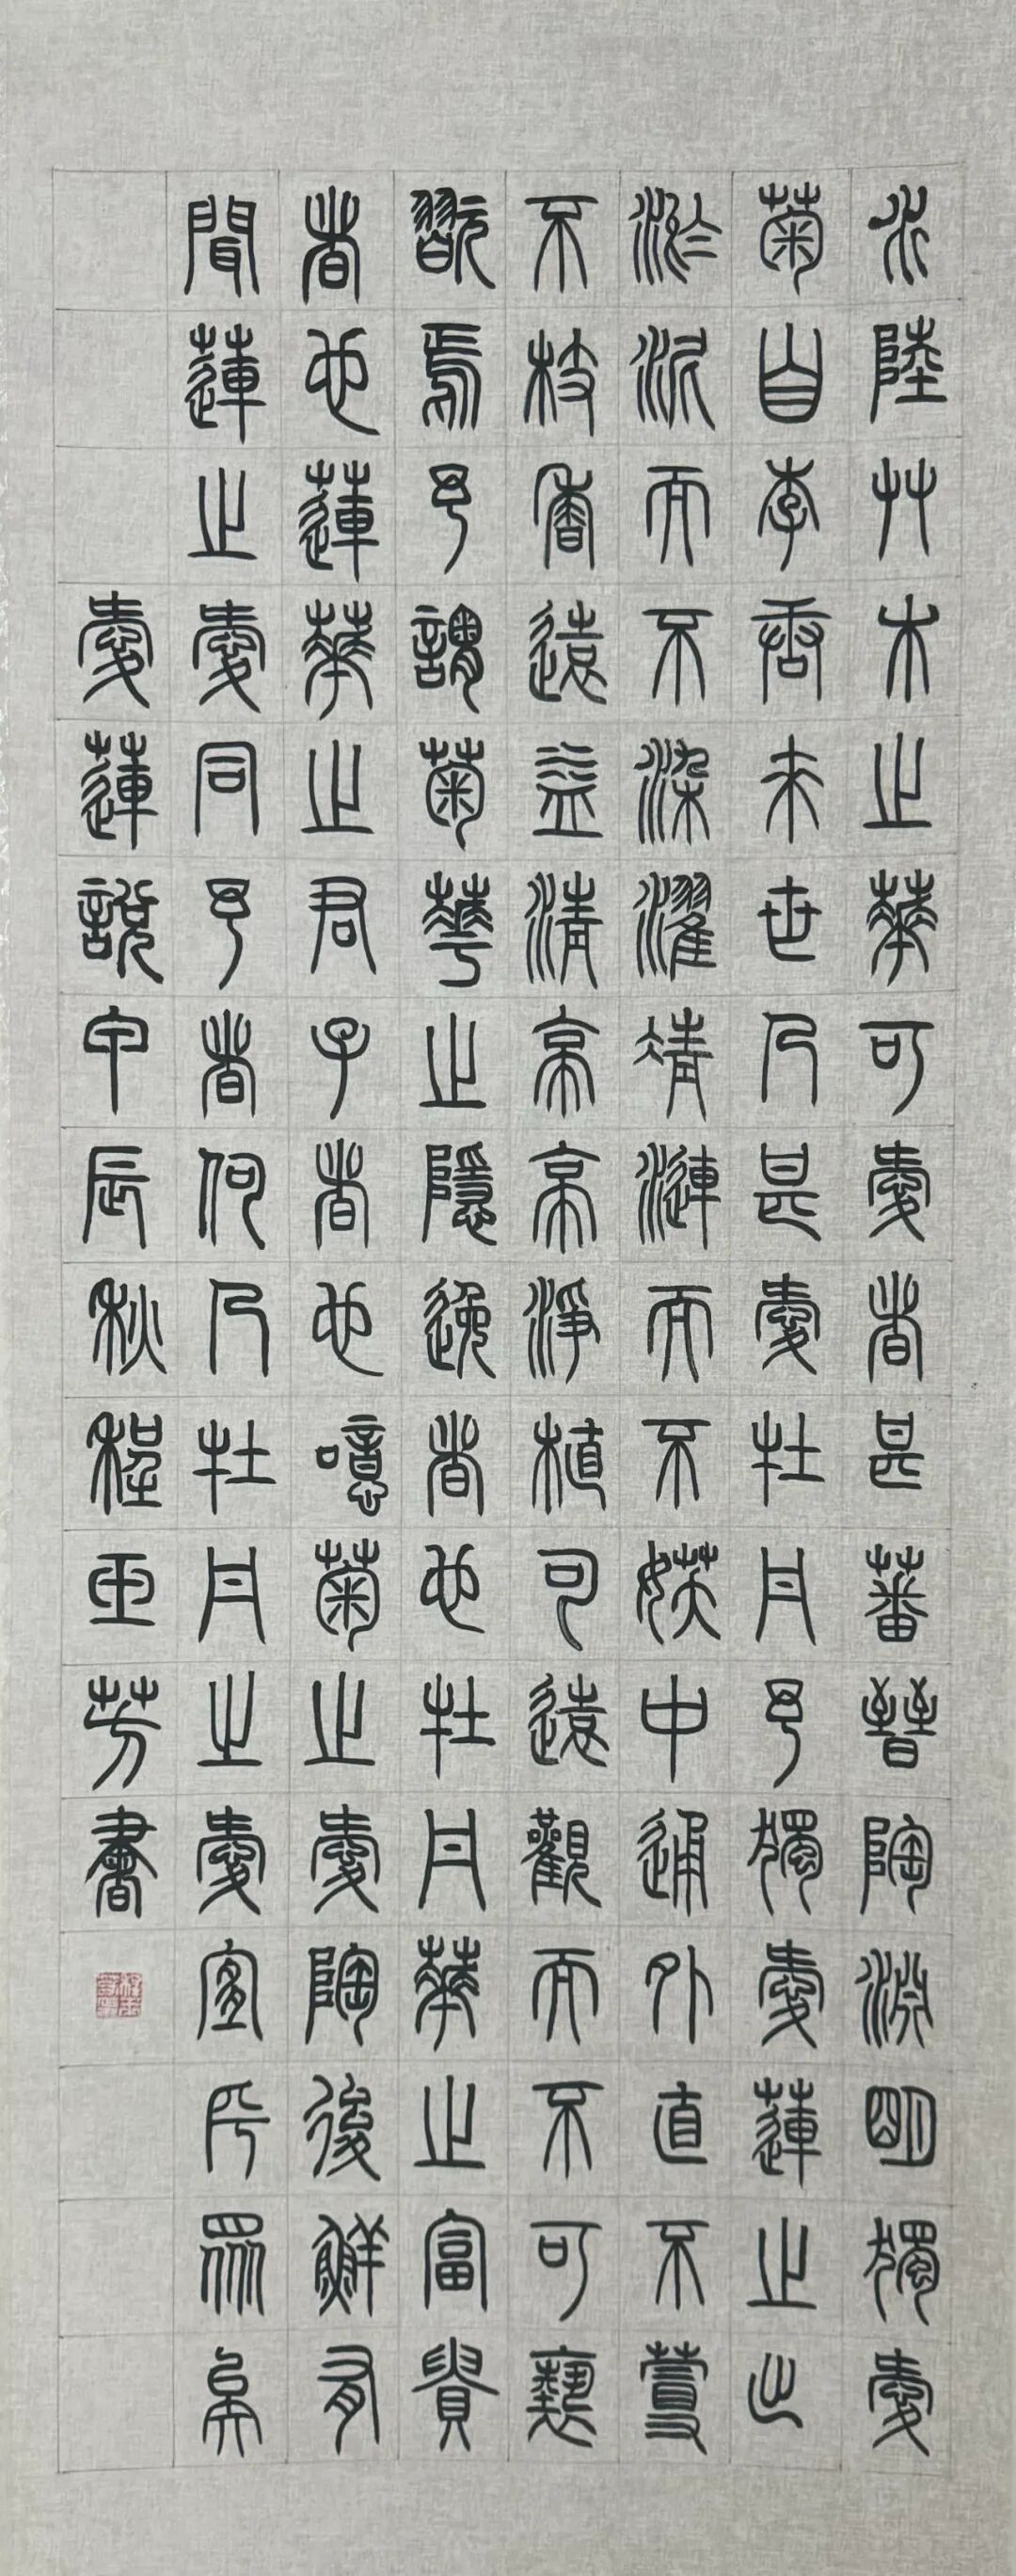 水陸艸木之華可愛者甚蕃晉陶淵明獨愛
菊自李唐來世人甚愛牡丹予獨愛蓮之出
淤泥而不染濯靖漣而不妖中通外直不蔓
不枝香遠益清亭亭淨植可遠觀而不可褻
翫焉予謂菊華之隱逸者也牡丹華之富貴
者也蓮華之君子者也噫菊之愛陶後鮮有
聞蓮之愛同予者何人牡丹之愛宜乎眾矣
愛蓮說甲辰秋程芳書